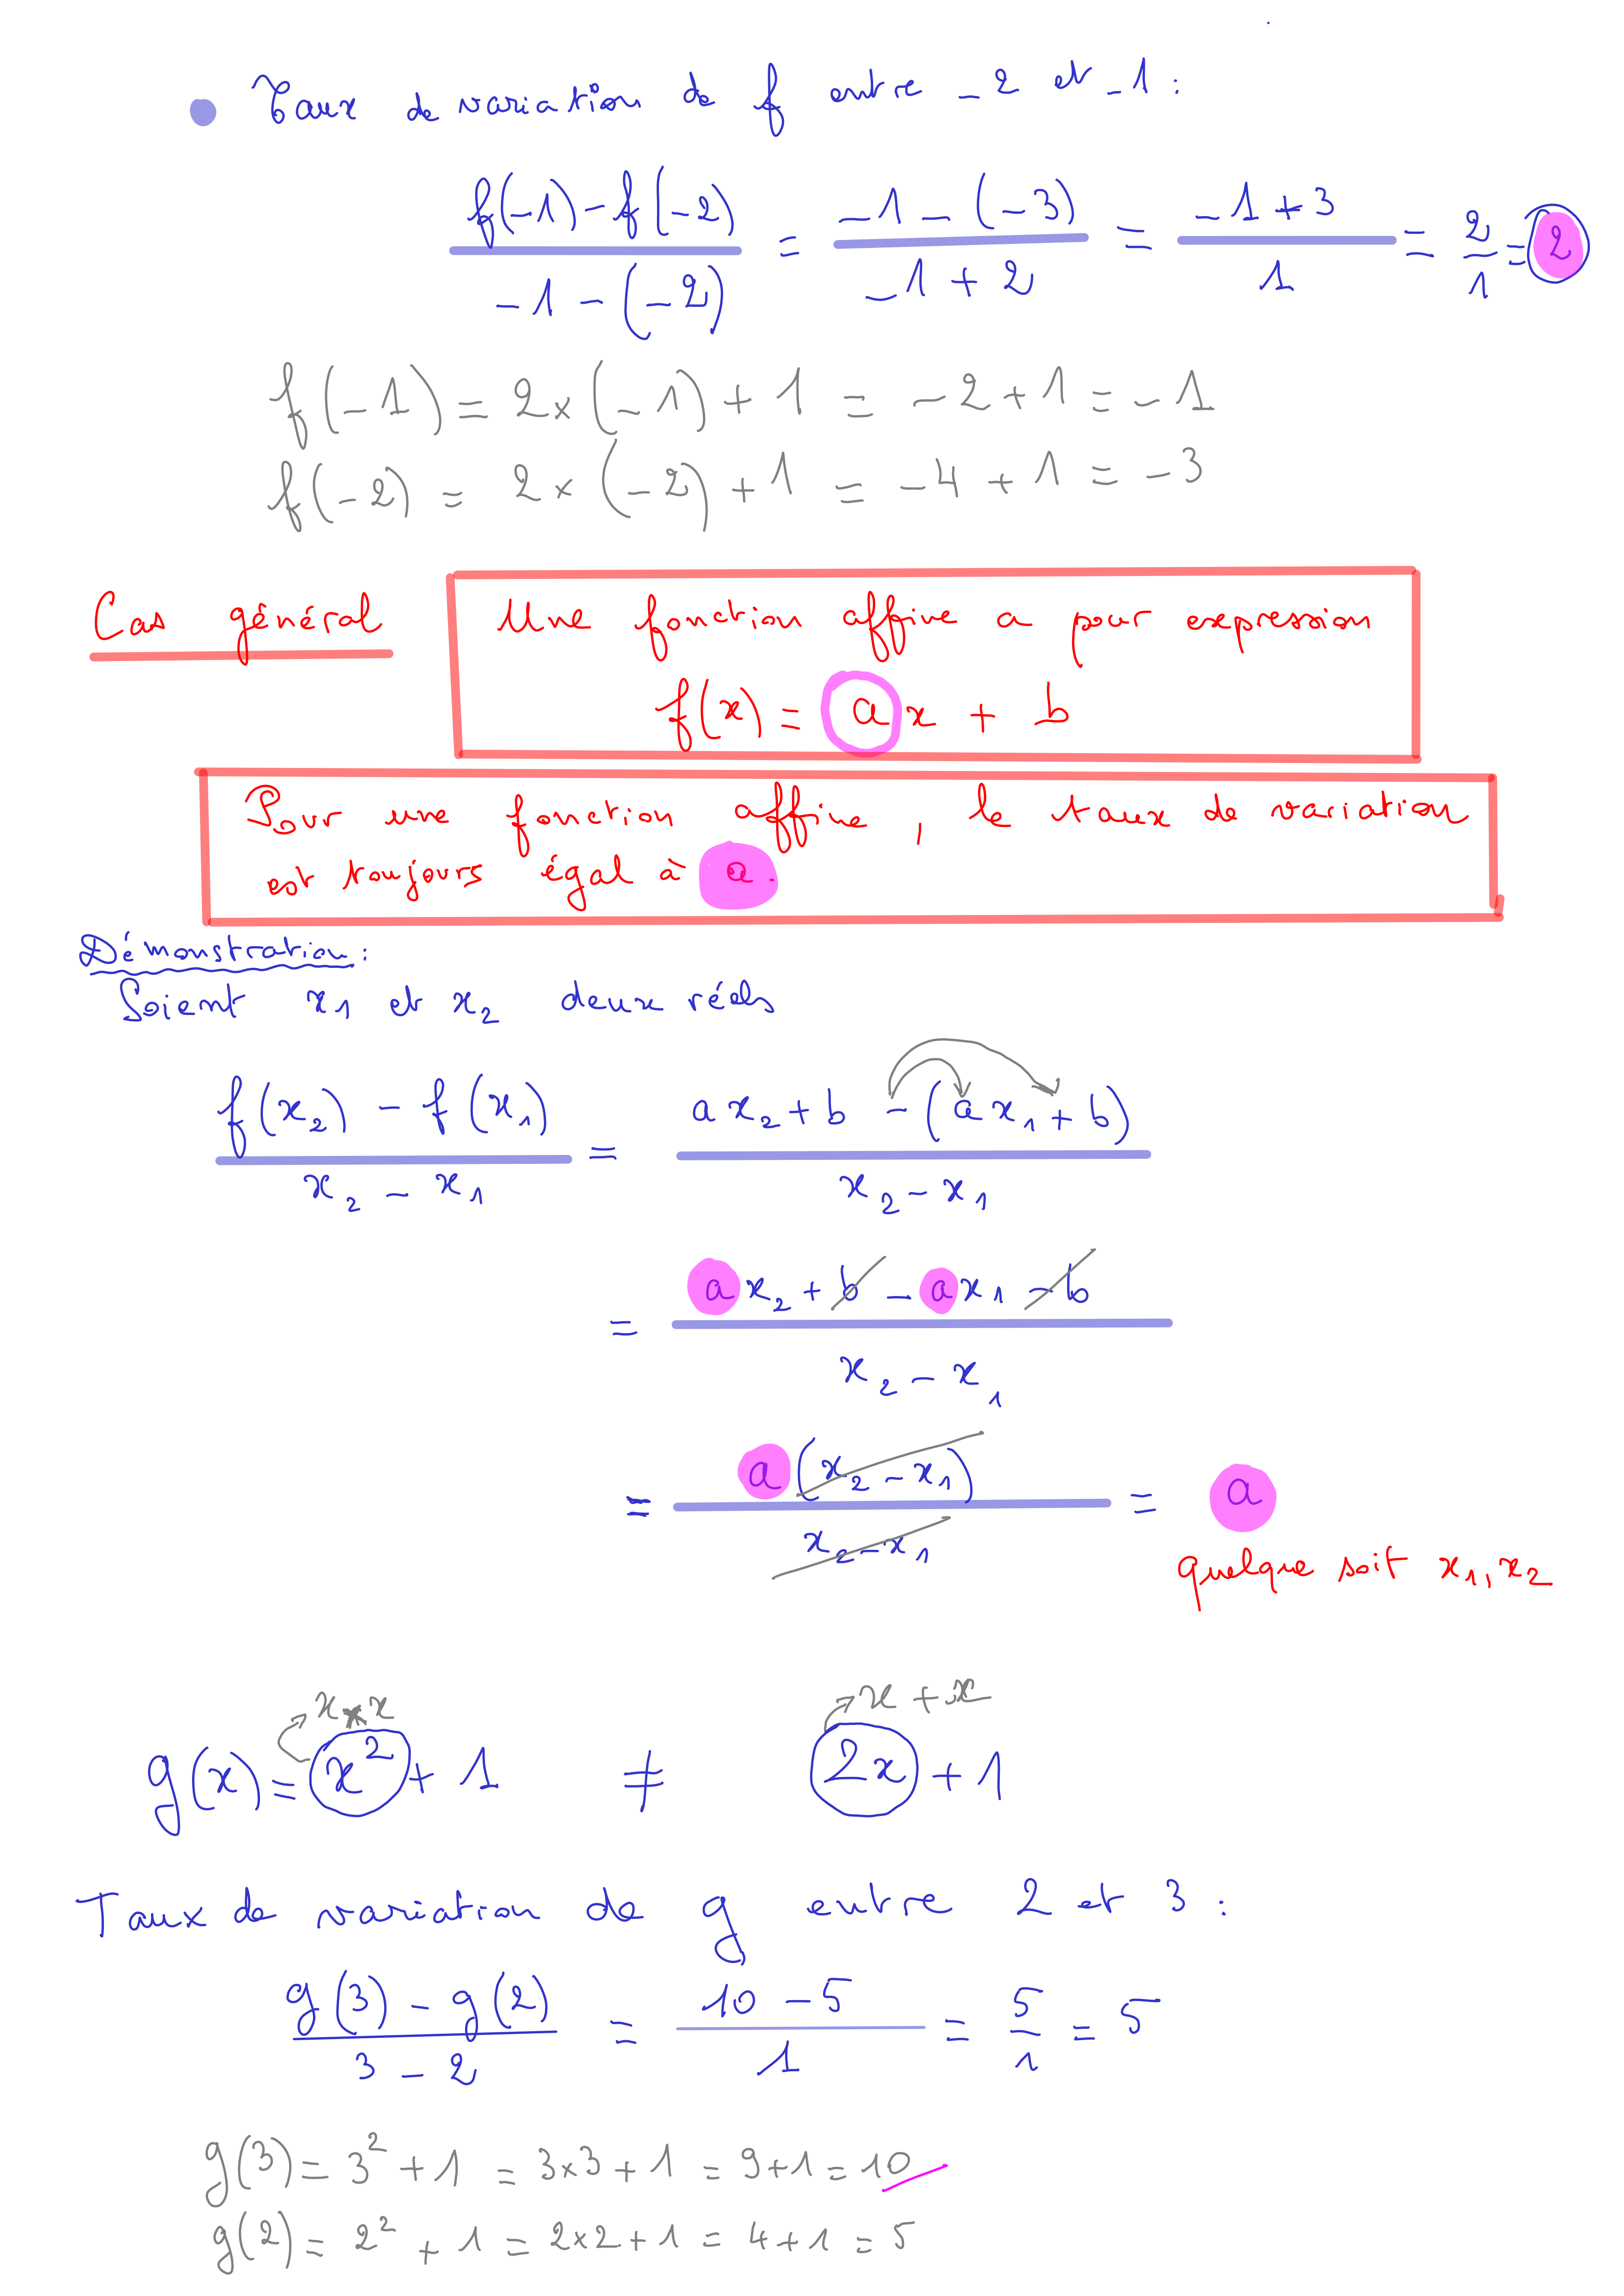 Taux de variation de f entre -2 et -1 :
(f(-1) - f(-2)) / (-1 - (-2)) = (-1 - (-3)) / (-1 + 2) = (-1 + 3) / 1 = 2/1 = 2
f(-1) = 2 × (-1) + 1 = -2 + 1 = -1
f(-2) = 2 × (-2) + 1 = -4 + 1 = -3
Cas général
Une fonction affine a pour expression
f(x) = a x + b
Pour une fonction affine, le taux de variation
est toujours égal à a.
Démonstration :
Soient x₁ et x₂ deux réels
(f(x₂) - f(x₁)) / (x₂ - x₁) = (a x₂ + b - (a x₁ + b)) / (x₂ - x₁)
= (a x₂ + b - a x₁ - b) / (x₂ - x₁)
= a (x₂ - x₁) / (x₂ - x₁) = a
quelque soit x₁, x₂
x × x
x + x
g(x) = x² + 1 ≠ 2x + 1
Taux de variation de g entre 2 et 3 :
(g(3) - g(2)) / (3 - 2) = (10 - 5) / 1 = 5/1 = 5
g(3) = 3² + 1 = 3×3 + 1 = 9+1 = 10
g(2) = 2² + 1 = 2×2 + 1 = 4+1 = 5